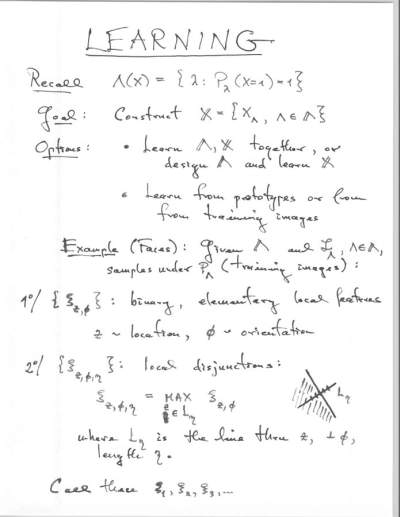 LEARNING
Recall Λ(x) = {λ: P_λ(X=1)=1}
Goal: Construct 𝕏 = {X_Λ, Λ∈𝔸}
Options: • Learn 𝔸, 𝕏 together, or
design 𝔸 and learn 𝕏
• Learn from prototypes or from
from training images
Example (Faces): Given 𝔸 and ℒ_Λ, Λ∈𝔸,
samples under P_Λ (training images):
1°/ {ξ_{z,φ}}: binary, elementary local features
z ~ location, φ ~ orientation
2°/ {ξ_{z,φ,η}}: local disjunctions:
ξ_{z,φ,η} = MAX_{z∈L_η} ξ_{z,φ}
L_η
where L_η is the line thru z, ⊥ φ,
length η.
Call these ξ₁, ξ₂, ξ₃, ...